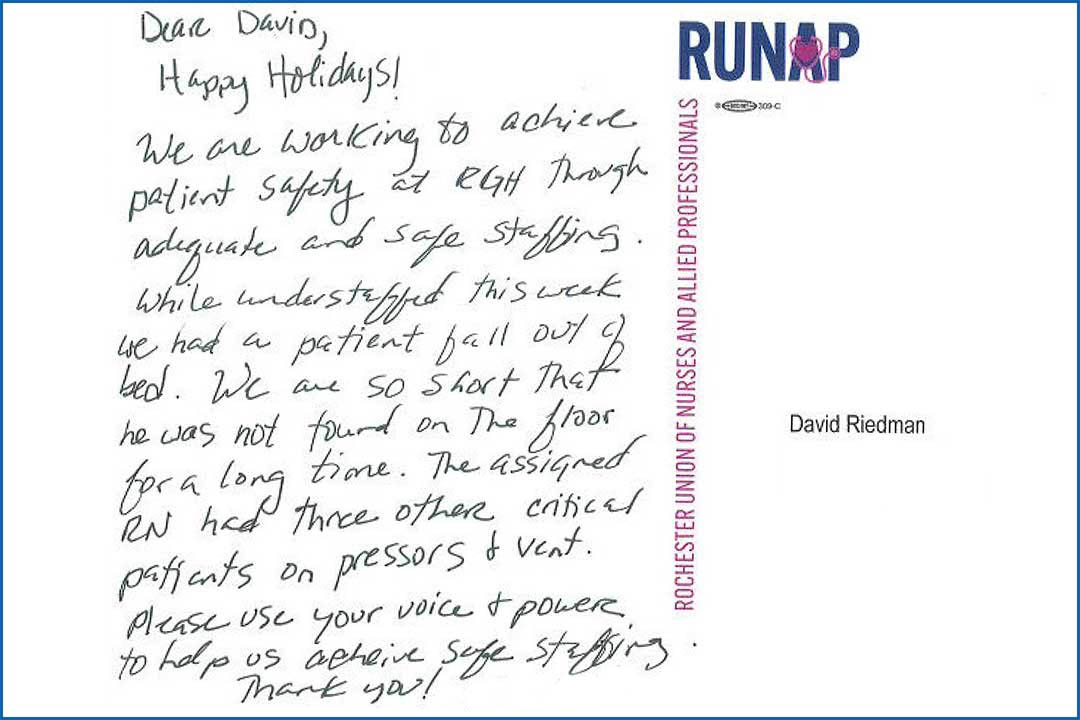 Dear David,
Happy Holidays!
We are working to achieve
patient safety at RGH through
adequate and safe staffing.
While understaffed this week
we had a patient fall out of
bed. We are so short that
he was not found on The floor
for a long time. The assigned
RN had three other critical
patients on pressors & vent.
Please use your voice & power
to help us acheive safe staffing.
Thank you!
RUNAP
309-C
ROCHESTER UNION OF NURSES AND ALLIED PROFESSIONALS
David Riedman